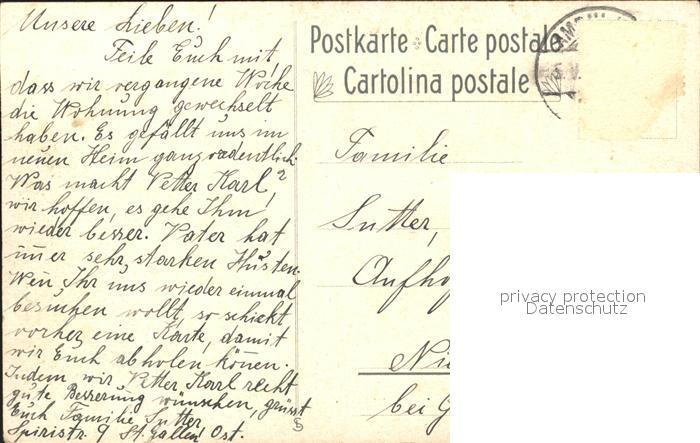 Unsere Lieben!
Teile Euch mit,
dass wir vergangene Woche
die Wohnung gewechselt
haben. Es gefällt uns im
neuen Heim ganz ordentlich.
Was macht Vetter Karl?
wir hoffen, es gehe Ihm
wieder besser. Vater hat
immer sehr starken Husten.
Wen Ihr uns wieder einmal
besuchen wollt, so schickt
vorher eine Karte, damit
wir Euch abholen könen.
Indem wir Vetter Karl recht
gute Besserung wünschen, grüsst
Euch Familie Sutter,
9 St. Gallen Ost.
Postkarte Carte postale
Cartolina postale
Familie
Sutter,
Aufho
Ni
bei G
privacy protection
Datenschutz